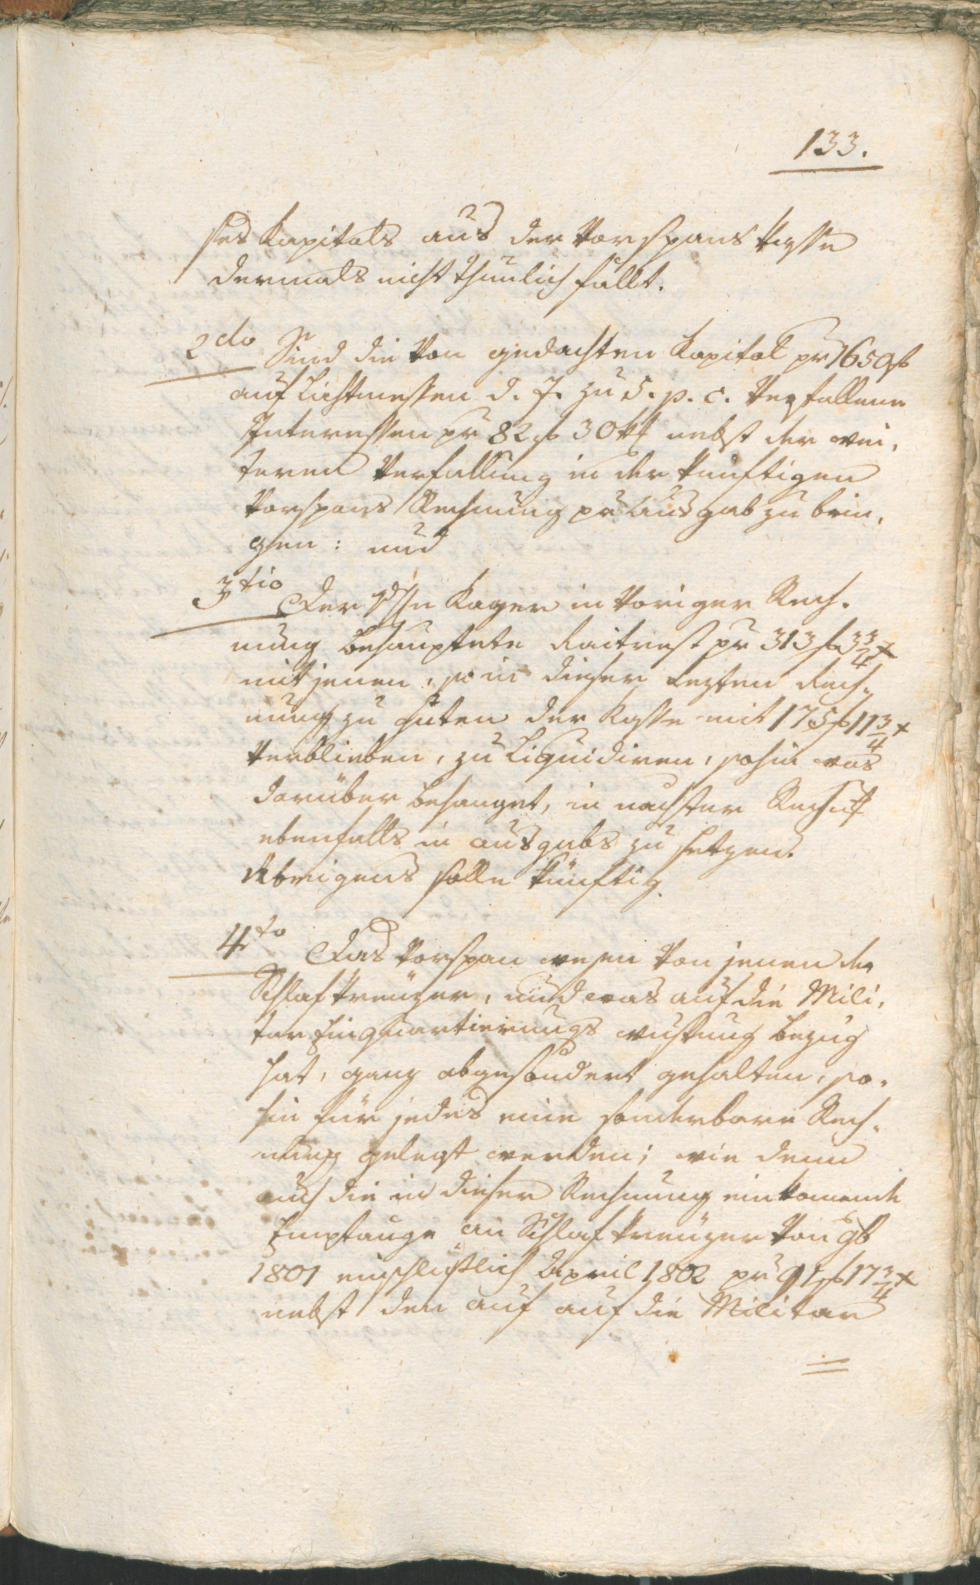 133.
ses Kapitals aus der Vorspans Kasse
dermals nicht thunlich fallt.
2do Sind die von gedachten Kapital pr 1650 f
auf Lichtmessen d. J. zu 5. p. c. verfallene
Interessen pr 82 f 30 kr nebst der wei,
teren Verfallung in der künftigen
Vorspans Rechnung pr Ausgab zu brin,
gen: und
3tio Der Kager in voriger Rech,
nung behauptete Raitrest pr 313 f 3 3/4 x
mit jenen, so in dieser lezten Rech,
nung zu guten der Kasse mit 175 f 11 3/4 x
verblieben, zu liquidiren, sohin was
darüber behanget, in nachster Rechnung
ebenfalls in ausgabs zu setzen.
Übrigens solle künftig
4to Das Vorspan wesen von jenen der
Schlafkreuzer, und was auf die Mili,
tar Einquartierungs Bezug
hat, ganz abgesondert gehalten, so,
hin für jedes eine sonderbare Rech,
nung gelegt werden; wie denn
auch die in dieser Rechnung einkomende
Empfange an Schlafkreuzer von 9b
1801 einschlüßlich April 1802 pr 91 f 17 3/4 x
nebst den auf auf die Militar